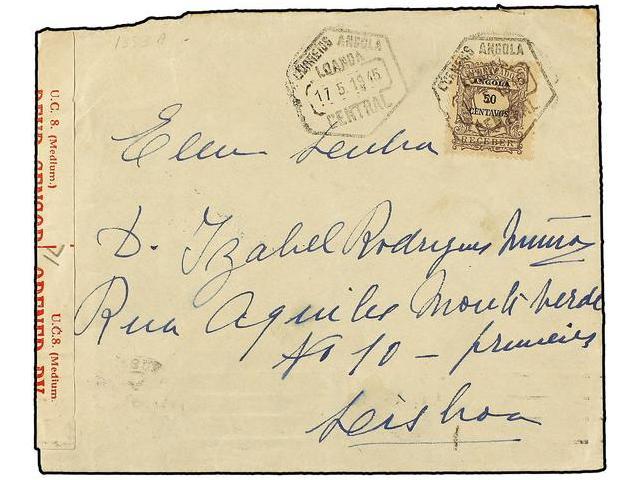 1353 A
CORREIOS ANGOLA
LOANDA
17.5.1945
CENTRAL
CORREIOS ANGOLA
ANGOLA
50
CENTAVOS
RECEBER
Senhora
D. Izabel Rodrigues Muñoz
Rua Aquiles Monteverde
No 10 – primeiro
Lisboa
U.C. 8. (Medium.)
U.C.8. (Medium.
OPENED BY